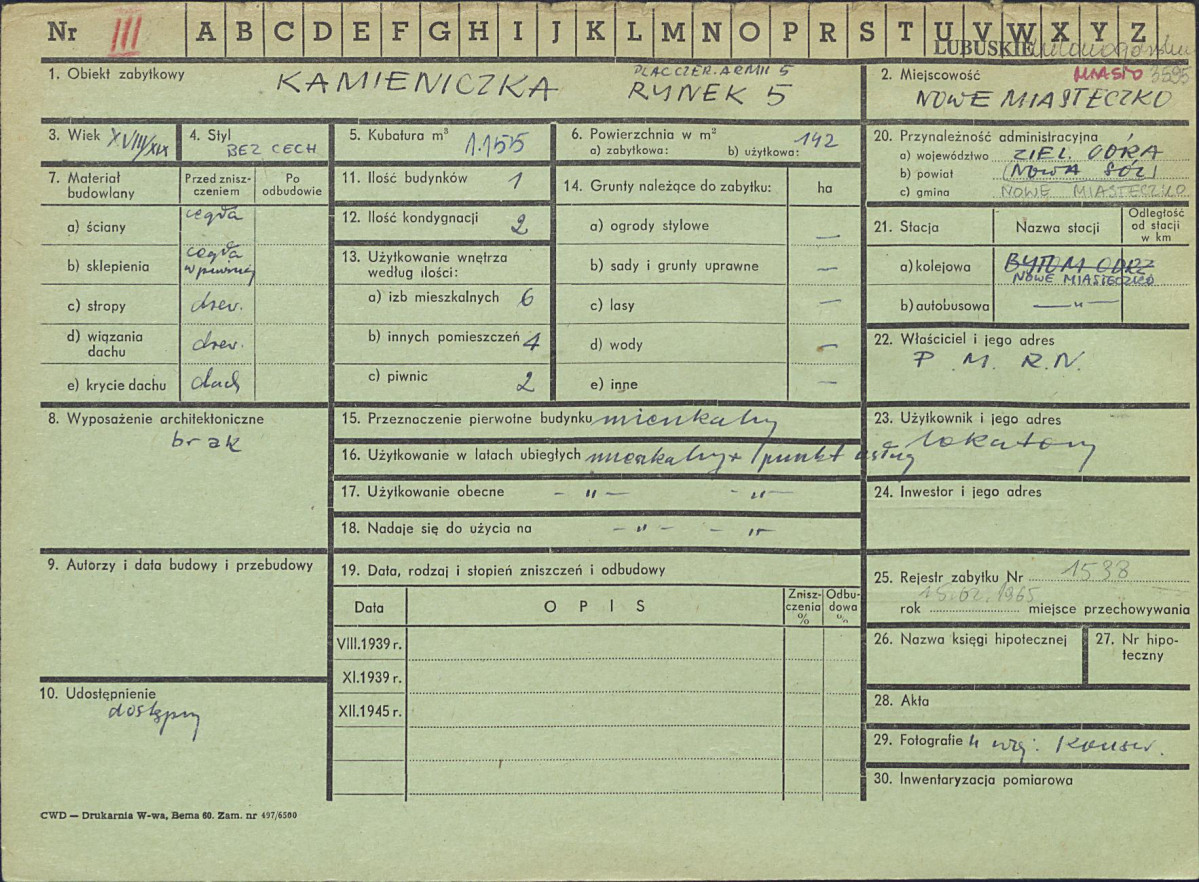 Nr III A B C D E F G H I J K L M N O P R S T U V W X Y Z
LUBUSKIE
1. Obiekt zabytkowy
KAMIENICZKA
PLAC CZER. ARMII 5
RYNEK 5
2. Miejscowość
MIASTO 3595
NOWE MIASTECZKO
3. Wiek XVIII/XIX
4. Styl
BEZ CECH
5. Kubatura m³
1.155
6. Powierzchnia w m²
a) zabytkowa: b) użytkowa: 142
7. Materiał budowlany
Przed zniszczeniem
Po odbudowie
a) ściany cegła
b) sklepienia cegła
w piwnicy
c) stropy drew.
d) wiązania dachu drew.
e) krycie dachu dach.
8. Wyposażenie architektoniczne
brak
9. Autorzy i data budowy i przebudowy
10. Udostępnienie
dostępny
11. Ilość budynków 1
12. Ilość kondygnacji 2
13. Użytkowanie wnętrza według ilości:
a) izb mieszkalnych 6
b) innych pomieszczeń 4
c) piwnic 2
14. Grunty należące do zabytku: ha
a) ogrody stylowe —
b) sady i grunty uprawne —
c) lasy —
d) wody —
e) inne —
15. Przeznaczenie pierwotne budynku mieszkalny
16. Użytkowanie w latach ubiegłych mieszkalny + punkt usług
17. Użytkowanie obecne - " - - " -
18. Nadaje się do użycia na - " - - " -
19. Data, rodzaj i stopień zniszczeń i odbudowy
Data OPIS Zniszczenia % Odbudowa %
VIII.1939 r.
XI.1939 r.
XII.1945 r.
20. Przynależność administracyjna
a) województwo ZIEL. GÓRA
b) powiat (NOWA SÓL)
c) gmina NOWE MIASTECZKO
21. Stacja Nazwa stacji Odległość od stacji w km
a) kolejowa BYTOM ODRZ
NOWE MIASTECZKO
b) autobusowa — " —
22. Właściciel i jego adres
P. M. R. N.
23. Użytkownik i jego adres
lokatorzy
24. Inwestor i jego adres
25. Rejestr zabytku Nr 1538
15.02.1965
rok miejsce przechowywania
26. Nazwa księgi hipotecznej
27. Nr hipoteczny
28. Akta
29. Fotografie u woj. Konserw.
30. Inwentaryzacja pomiarowa
CWD — Drukarnia W-wa, Bema 60. Zam. nr 497/6500